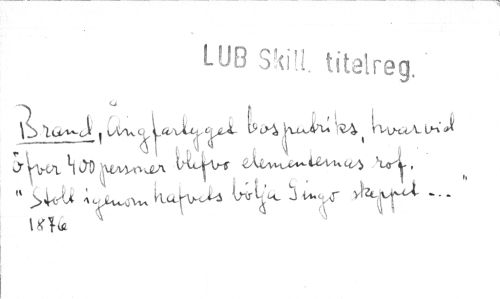 LUB Skill. titelreg.
Brand, Ångfartyget Cospatriks, hvarvid
öfver 400 personer blefvo elementernas rof.
"Stolt igenom hafvets bölja Gingo skeppet ... "
1876